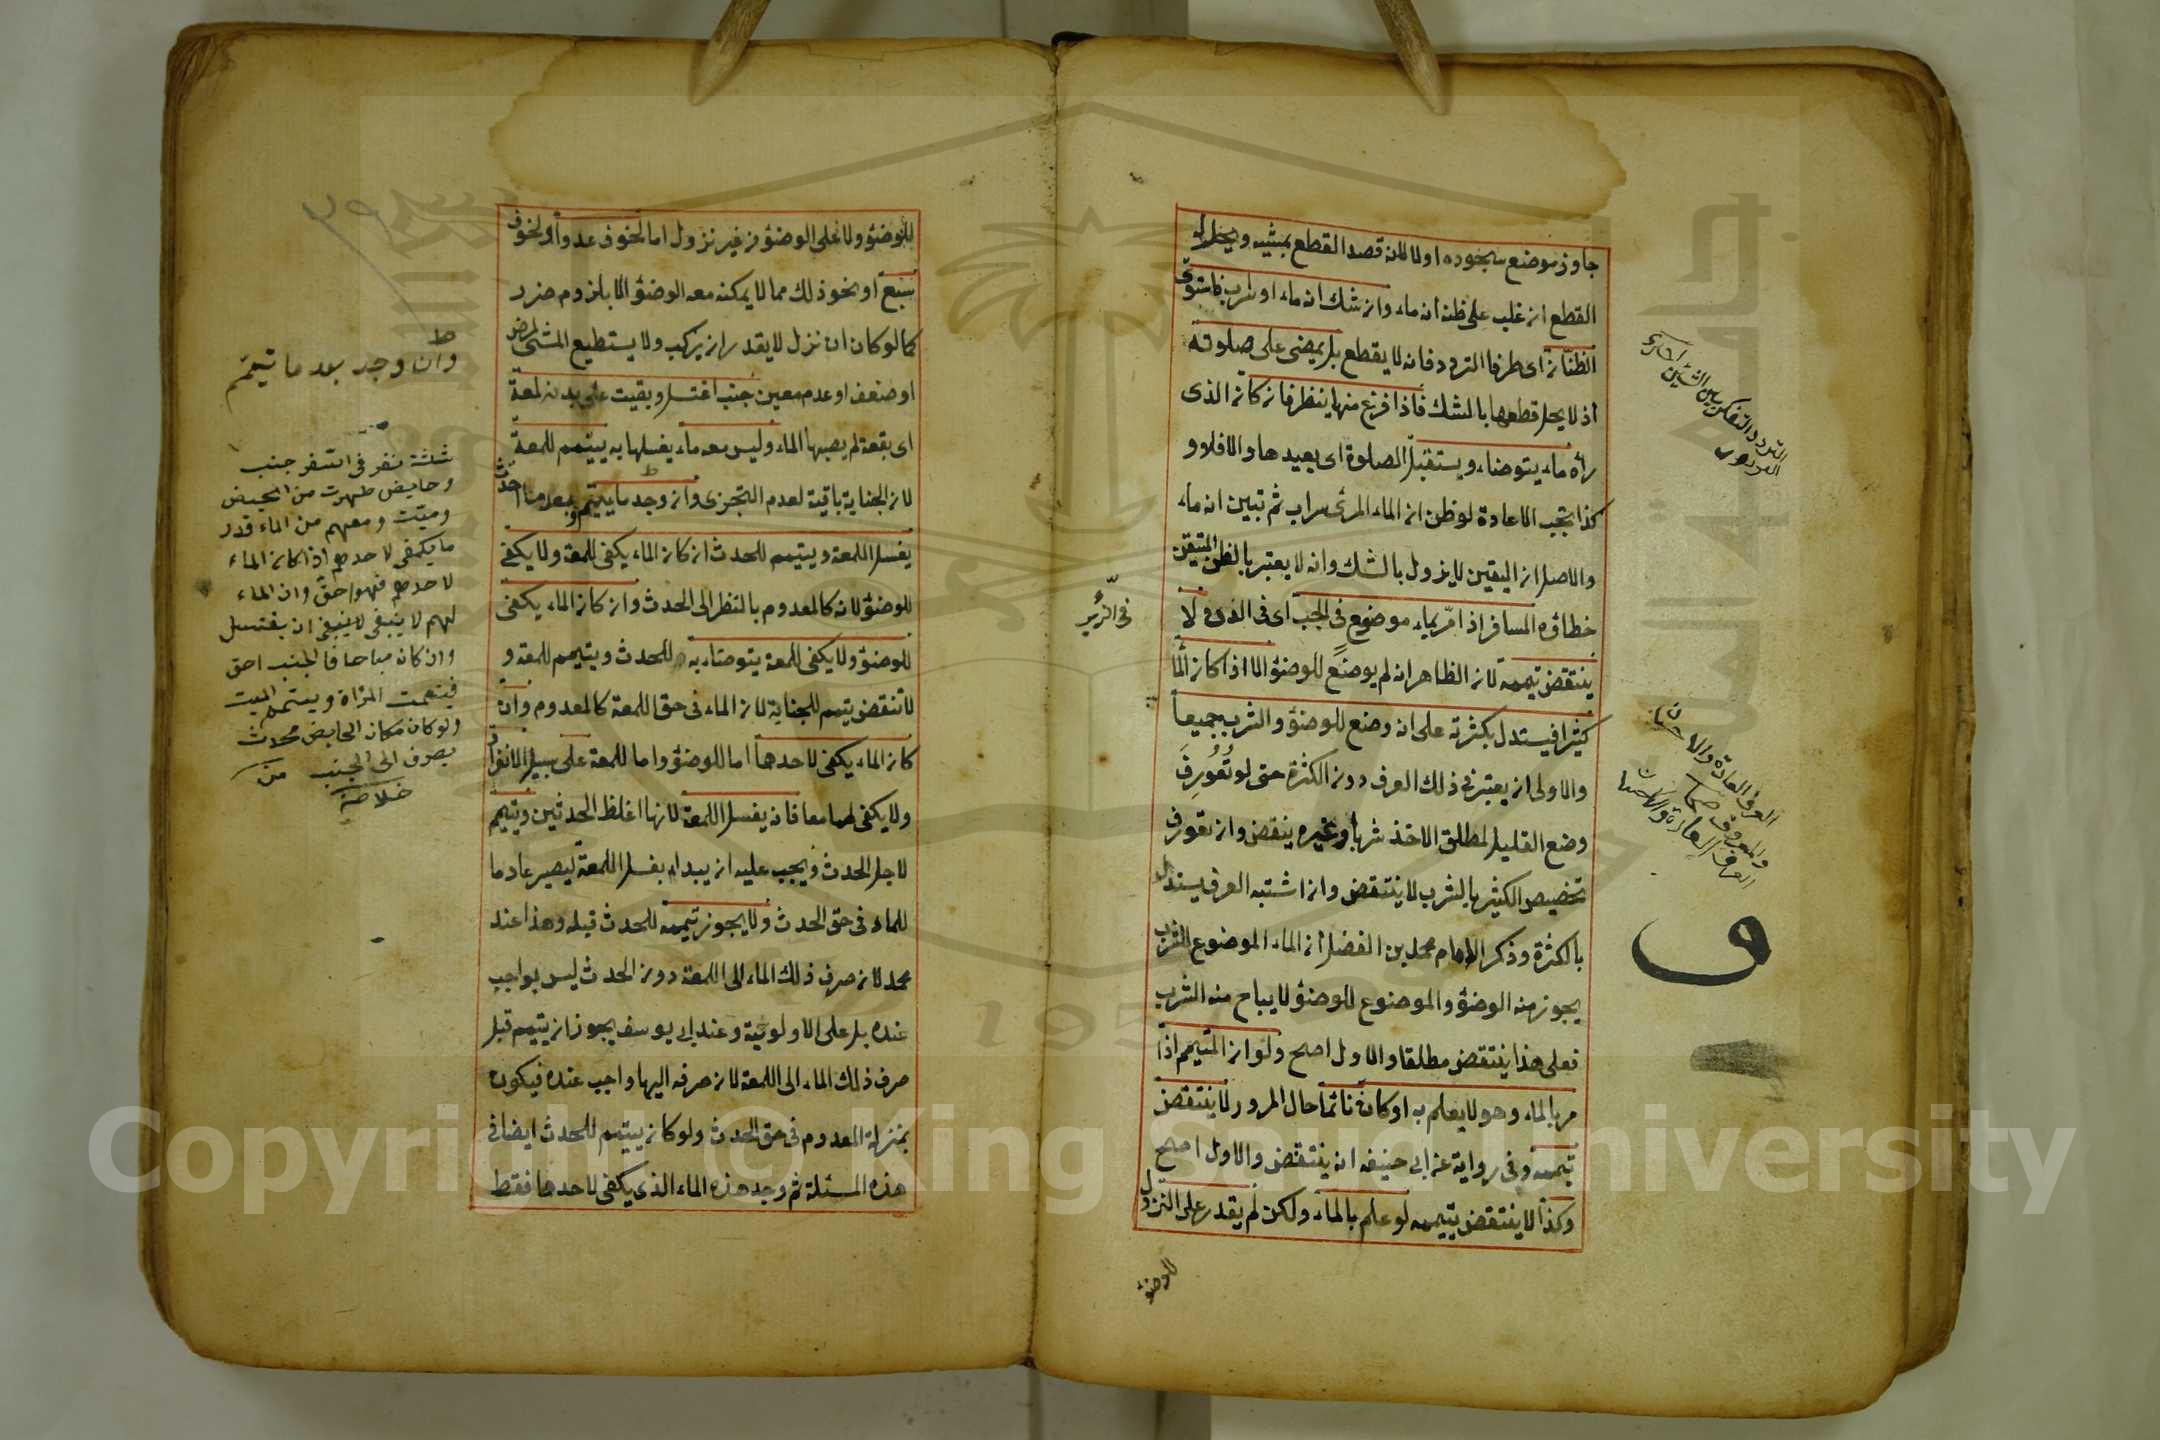 جاوز موضع سجوده اولا لان قصد القطع بمشيه ويحل له
القطع ان غلب على ظنه انه ماء وان شك انه ماء او سراب فاستوى
الظنان اى طرفا التردد فانه لا يقطع بل يمضى على صلوته
اذ لا يحل قطعها بالشك فاذا فرغ منها ينظر فان كان الذى
رأه ماء يتوضاء ويستقبل الصلوة اى يعيدها والا فلا و
كذا تجب الاعادة لو ظن ان الماء المرئى سراب ثم تبين انه ماء
والاصل ان اليقين لا يزول بالشك وانه لا يعتبر بالظن المتيقن
خطاؤه المسافر اذا مر بماء موضوع فى الجب اى فى الدن لا
ينتقض تيممه لان الظاهر انه لم يوضع للوضؤ الا اذا كان الماء
كثيرا فيستدل بكثرته على انه وضع للوضؤ والشرب جميعا
والاولى ان يعتبر فى ذلك العرف دون الكثرة حتى لو تُعُورِفَ
وضع القليل لمطلق الاخذ شربا وغيره ينقض وان تعورف
تخصيص الكثير بالشرب لا ينتقض وان اشتبه العرف يستدل
بالكثرة وذكر الامام محمد بن الفضل ان الماء الموضوع للشرب
يجوز منه الوضؤ والموضوع للوضؤ لا يباح منه الشرب
فعلى هذا ينتقض مطلقا والاول اصح ولو ان المتيمم اذا
مر بالماء وهو لا يعلم به او كان نائما حال المرور لا ينتقض
تيممه وفى رواية عن ابى حنيفه انه ينتقض والاول اصح
وكذا لا ينتقض تيممه لو علم بالماء ولكن لم يقدر على النزول
للوضؤ
فى الزير
العرف العادة والاحسان
للوضؤ ولا على الوضؤ من غير نزول اما لخوف عدو او لخوف
سبع او نحو ذلك مما لا يمكنه معه الوضؤ الا بلزوم ضرر
كما لو كان ان نزل لا يقدر ان يركب ولا يستطيع المشى لمرض
او ضعف او عدم معين جنب اغتسل وبقيت على بدنه لمعة
اى بقعة لم يصبها الماء وليس معه ماء يغسلها به يتيمم للمعة
لان الجنابة باقية لعدم التجزى وان وجد ما يتيمم وبعد ما احدث
يغسل اللمعة ويتيمم للحدث ان كان الماء يكفى للمعة ولا يكفى
للوضؤ لانه كالمعدوم بالنظر الى الحدث وان كان الماء يكفى
للوضؤ ولا يكفى للمعة يتوضاء به للحدث ويتيمم للمعة و
لا تنقض تيمم للجنابة لان الماء فى حق اللمعة كالمعدوم وان
كان الماء يكفى لاحدهما اما للوضؤ واما للمعة على سبيل الانفراد
ولا يكفى لهما معا فانه يغسل اللمعة لانها اغلظ الحدثين ويتيمم
لاجل الحدث ويجب عليه ان يبداء بغسل اللمعة ليصير عادما
للماء فى حق الحدث ولا يجوز تيممه للحدث قبله وهذا عند
محمد لان صرف ذلك الماء الى اللمعة دون الحدث ليس بواجب
عنده بل على الاولوية وعند ابى يوسف يجوز ان يتيمم قبل
صرف ذلك الماء الى اللمعة لان صرفه اليها واجب عنده فيكون
بمنزلة المعدوم فى حق الحدث ولو كان يتيمم للحدث ايضا فى
هذه المسئلة ثم وجد هذه الماء الذى يكفى لاحدهما فقط
٣٩
ط
وان وجد بعد ما تيمم
ثلثة نفر فى السفر جنب
وحايض طهرت من الحيض
وميت ومعهم من الماء قدر
ما يكفى لاحدهم اذا كان الماء
لاحدهم فهو احق وان الماء
لهم لا ينبغى ان يغتسل
وان كان مباحا فالجنب احق
فيتيممت المراة ويتيمم الميت
ولو كان مكان الحايض محدث
يصرف الى الجنب من
خلاصة
Copyright © King Saud University